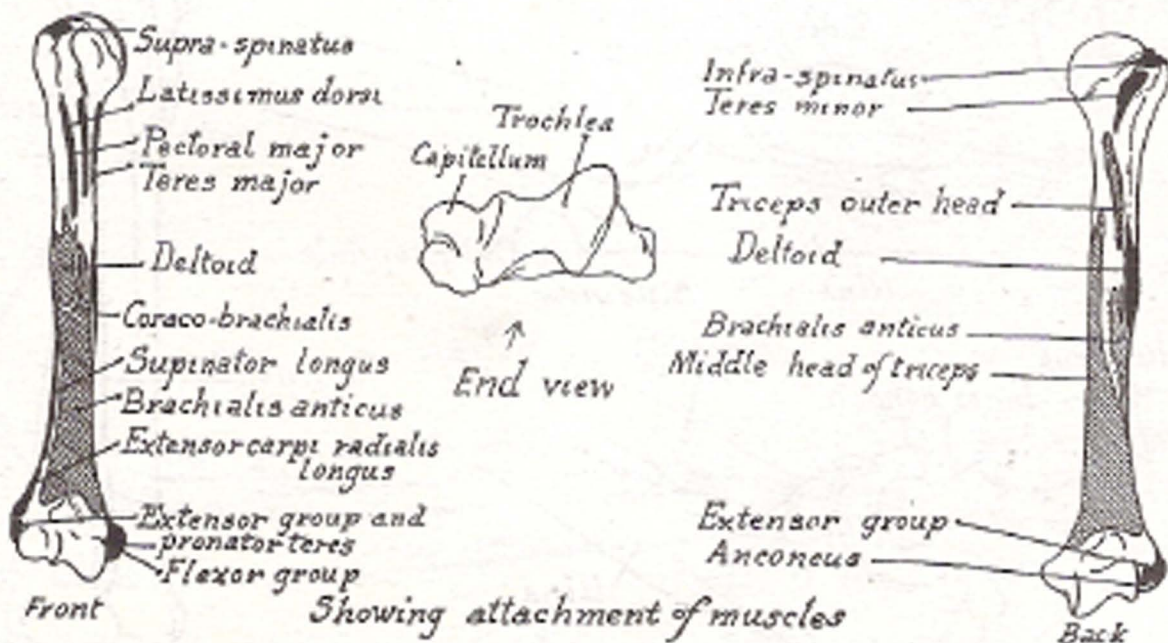 Supra-spinatus
Latissimus dorsi
Pectoral major
Teres major
Deltoid
Coraco-brachialis
Supinator longus
Brachialis anticus
Extensor carpi radialis
longus
Extensor group and
pronator teres
Flexor group
Front
Capitellum
Trochlea
End view
Infra-spinatus
Teres minor
Triceps outer head
Deltoid
Brachialis anticus
Middle head of triceps
Extensor group
Anconeus
Back
Showing attachment of muscles